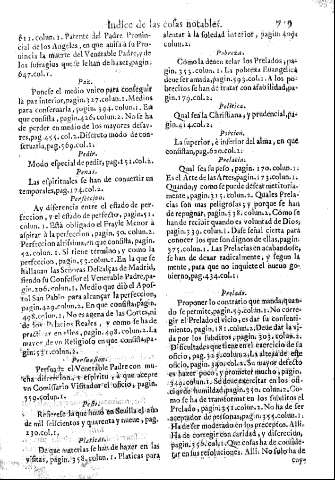 Indice de las cosas notables.
611. colun. 1. Patente del Padre Provincial
de los Angeles, en que avisa a su Provincia
la muerte del Venerable Padre, y de
los sufragios que se le han de hazer, pagin.
647. col. 1.
Paz.
Ponese el medio vnico para conseguir
la paz interior, pagin. 327. colun. 2. Medios
para conservarla, pagin. 394. colun. 1. En
que consista, pagin. 426. colun. 2. No se ha
de perder en medio de los mayores desayres,
pag. 455. col. 2. Discreto modo de conservarla,
pag. 569. col. 1.
Pedir.
Modo especial de pedir, pag. 151. col. 2.
Penas.
Las espirituales, se han de convertir en
temporales, pag. 174. col. 2.
Perfeccion.
Ay diferencia entre el estado de perfeccion,
y el estado de perfectos, pag.
colun. 1. Està obligado el Frayle Menor à
aspirar à la perfeccion, pagin. 50. colun. 2.
Perfeccion altissima, en que consista, pagin.
52. colun. 2. Si tiene termino, y como la
perfeccion, pagin. 57. colun. 2. En la que se
hallauan las Señoras Descalças de Madrid,
siendo su Confessor el Venerable Padre, pagin.
206. colun. 1. Medio que diò el Apostol
San Pablo para alcançar la perfeccion,
pagin. 429. colun. 2. En que consista, pagin.
498. colun. 1. No es agena de los Cortesanos
de los Palacios Reales, y como se ha de
practicar en ellos, pagin. 498. colun. 2. La
mayor de vn Religioso en que consista, pagin.
531. colun. 2.
Persuasion.
Persuade el Venerable Padre con mucha
discrecion, y espiritu, à que acepte
vn Comissario Visitador el oficio, pagin.
359. colun. 1.
Peste.
Refierese la que huvo en Sevilla el año
de mil seiscientos y quarenta y nueve, pag.
230. col. 1.
Platicas.
De que materias se han de hazer en las
visitas, pagin. 358. colun. 1. Platicas para
alentar à la soledad interior, pagin. 409.
colun. 2.
Pobreza.
Cómo la deben zelar los Prelados, pagin.
353. colun. 1. La pobreza Euangelica
deve ser amada, pagin. 593. col. 1. A los pobrecitos
se han de tratar con afabilidad, pagin.
179. col. 2.
Politica.
Qual sea la Christiana, y prudencial, pagin.
414. col. 2.
Porcion.
La superior, è inferior del alma, en que
consistan, pag. 600. col. 2.
Prelacia.
Qual sea su peso, pagin. 170. colun. 1.
Es el Arte de las Artes, pagin. 173. colun. 1.
Quando, y como se puede desear meritoriamente,
pagin. 315. colun. 2. Quales Prelacias
son mas peligrosas y porque se han
de repugnar, pagin. 328. colun. 2. Cómo se
han de recibir quando es voluntad de Dios,
pagin. 339. colun. 1. Dase señal cierta para
conocer los que son dignos de ellas, pagin.
375. colun. 1. Las Prelacias en acabandose,
se han de dexar radicalmente, y segun la
mente, para que no inquiete el nuevo govierno,
pag. 434. col. 1.
Prelado.
Proponer lo contrario que manda, quando
se permite, pagin. 59. colun. 1. No corregir
el Prelado el vicio, es dar su consentimiento,
pagin. 181. colun. 2. Deve dar la vida
por los subditos, pagin. 303. colun. 2.
Dificultades que tiene en el exercicio de su
oficio, pag. 323. colun. 2. La alteza de este
oficio, pagin. 340. col. 2. Su mayor defecto
es hazer poco, y prometer mucho, pagin.
349. colun. 2. Se deve exercitar en los oficios
de humildad, pagin. 350. colun. 2. Como
se han de sentir los defectos el subdito el
Prelado, pagin. 351. colun. 2. No ha de ser
aceptador de personas, pagin. 355. colun. 2.
Ha de ser moderado en los preceptos. Alli.
Ha de corregir con caridad, y discrecion,
pagin. 356. colun. 1. Que cosas ha de consultar
en sus resoluciones. Alli. No solo ha de